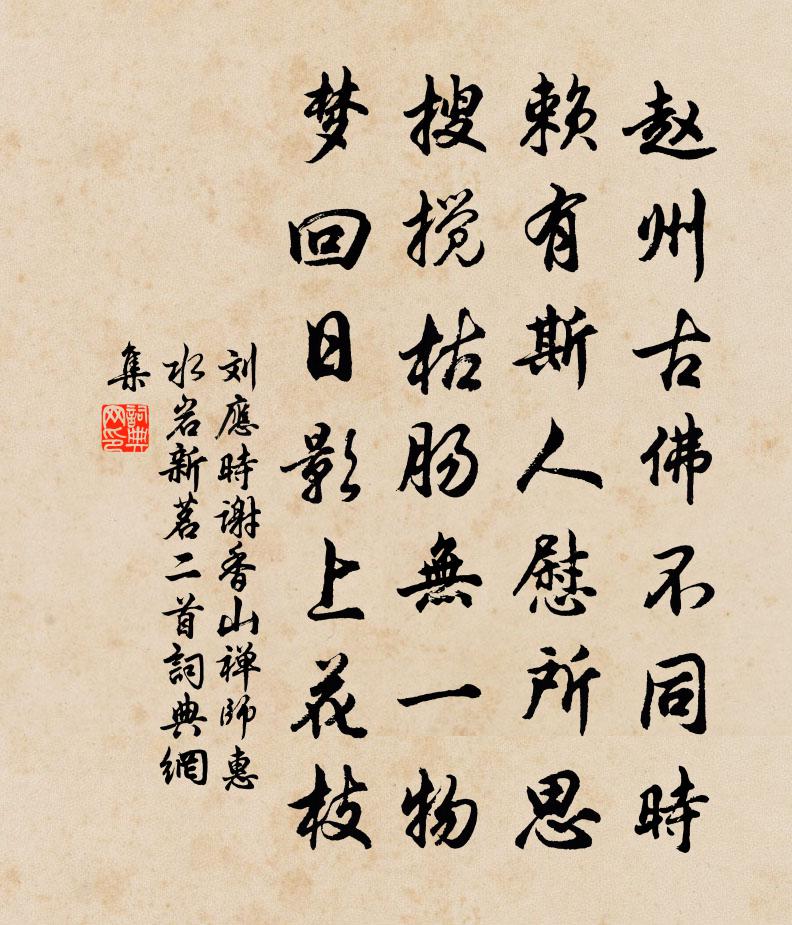 赵州古佛不同時
赖有斯人慰所思
搜搅枯肠無一物
梦回日影上花枝
刘應時谢香山禅師惠
水岩新茗二首詞典網
集
詞典网印